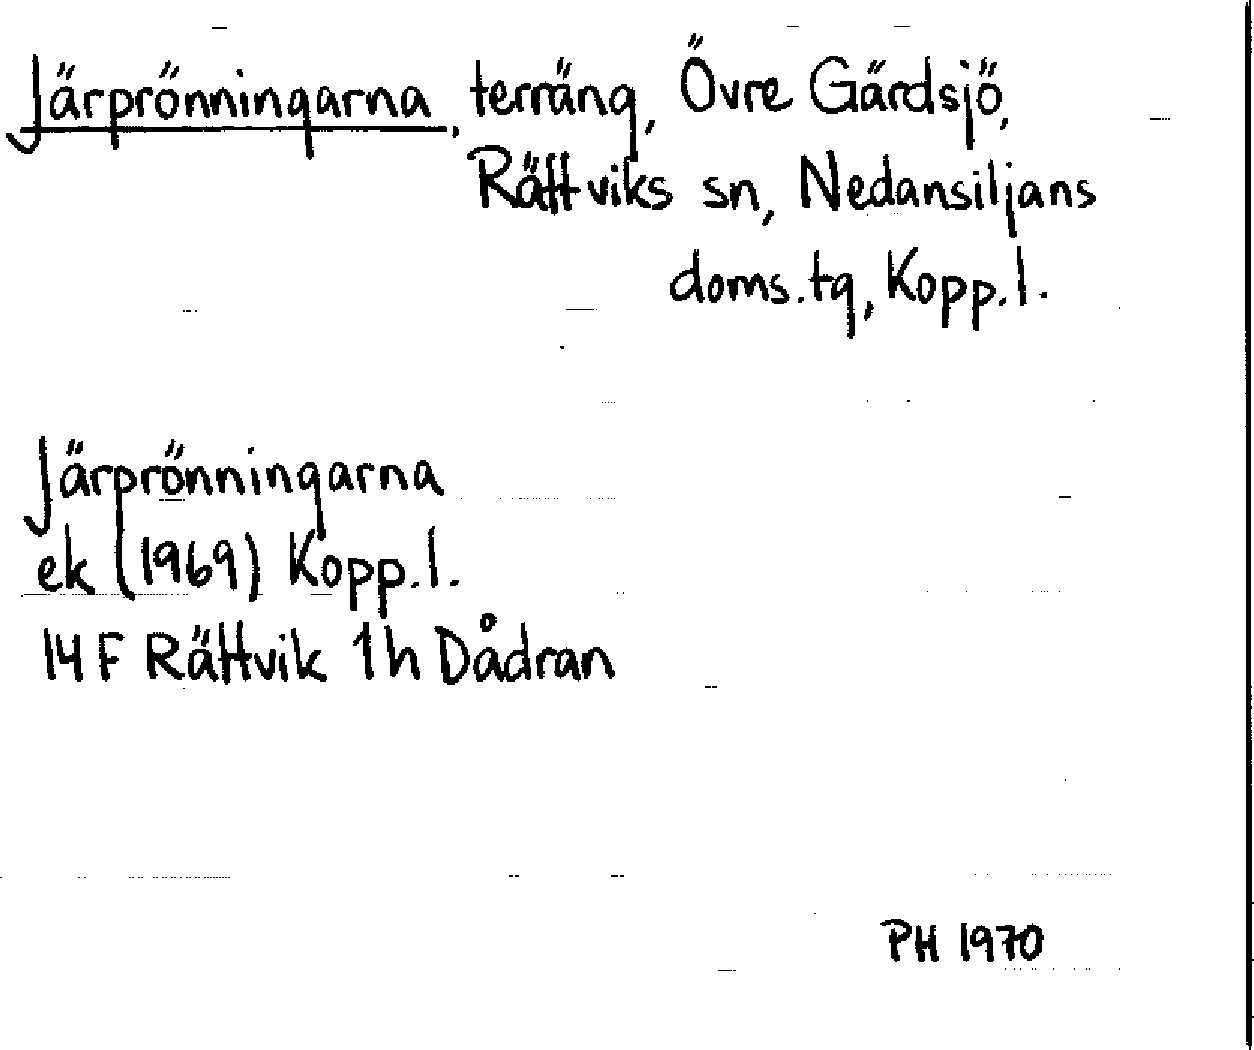 Järprönningarna, terräng, Övre Gärdsjö,
Rättviks sn, Nedansiljans
doms.tg, Kopp.l.
Järprönningarna
ek (1969) Kopp.l.
14F Rättvik 1h Dådran
PH 1970